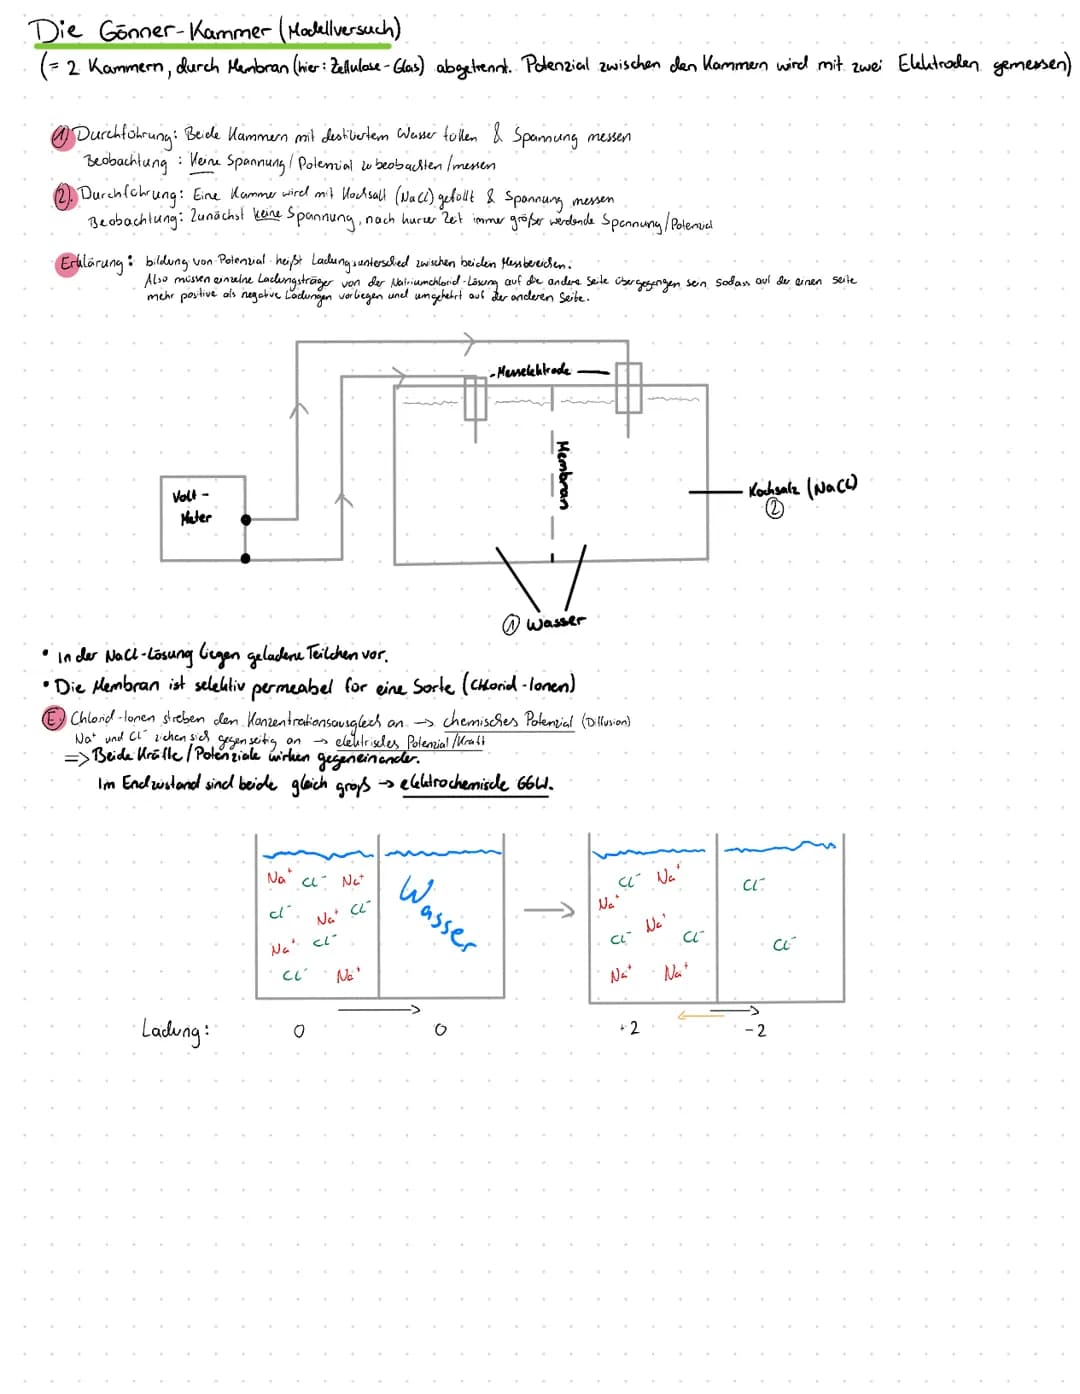 Die Gönner-Kammer (Modellversuch)
(= 2 Kammern, durch Membran (hier: Zellulose-Glas) abgetrennt. Potenzial zwischen den Kammern wird mit zwei Elektroden gemessen)
1) Durchführung: Beide Kammern mit destiliertem Wasser füllen & Spannung messen
Beobachtung: Keine Spannung / Potenzial zu beobachten / messen
2). Durchführung: Eine Kammer wird mit Kochsalz (NaCl) gefüllt & Spannung messen
Beobachtung: Zunächst keine Spannung, nach kurzer Zeit immer größer werdende Spannung / Potenzial
Erklärung: bildung von Potenzial heißt Ladungsunterschied zwischen beiden Messbereichen.
Also müssen einzelne Ladungsträger von der Natriumchlorid-Lösung auf die andere Seite übergegangen sein, sodass auf der einen Seite
mehr positive als negative Ladungen vorliegen und umgekehrt auf der anderen Seite.
- Messelektrode
Membran
Volt-
Meter
Kochsalz (NaCl)
2
1 Wasser
• In der NaCl-Lösung liegen geladene Teilchen vor.
• Die Membran ist selektiv permeabel für eine Sorte (Chlorid-Ionen)
E) Chlorid-Ionen streben den Konzentrationsausgleich an → chemisches Potenzial (Diffusion)
Na⁺ und Cl⁻ ziehen sich gegenseitig an → elektrisches Potenzial / Kraft
=> Beide Kräfte / Potenziale wirken gegeneinander.
Im Endzustand sind beide gleich groß → elektrochemische GGW.
Na⁺ Cl⁻ Na⁺
Cl⁻ Na⁺ Cl⁻
Na⁺ Cl⁻
Cl⁻ Na⁺
Wasser
Cl⁻ Na⁺
Na⁺
Na⁺
Cl⁻ Cl⁻
Na⁺ Na⁺
Cl⁻
Cl⁻
Ladung: 0 0 +2 -2